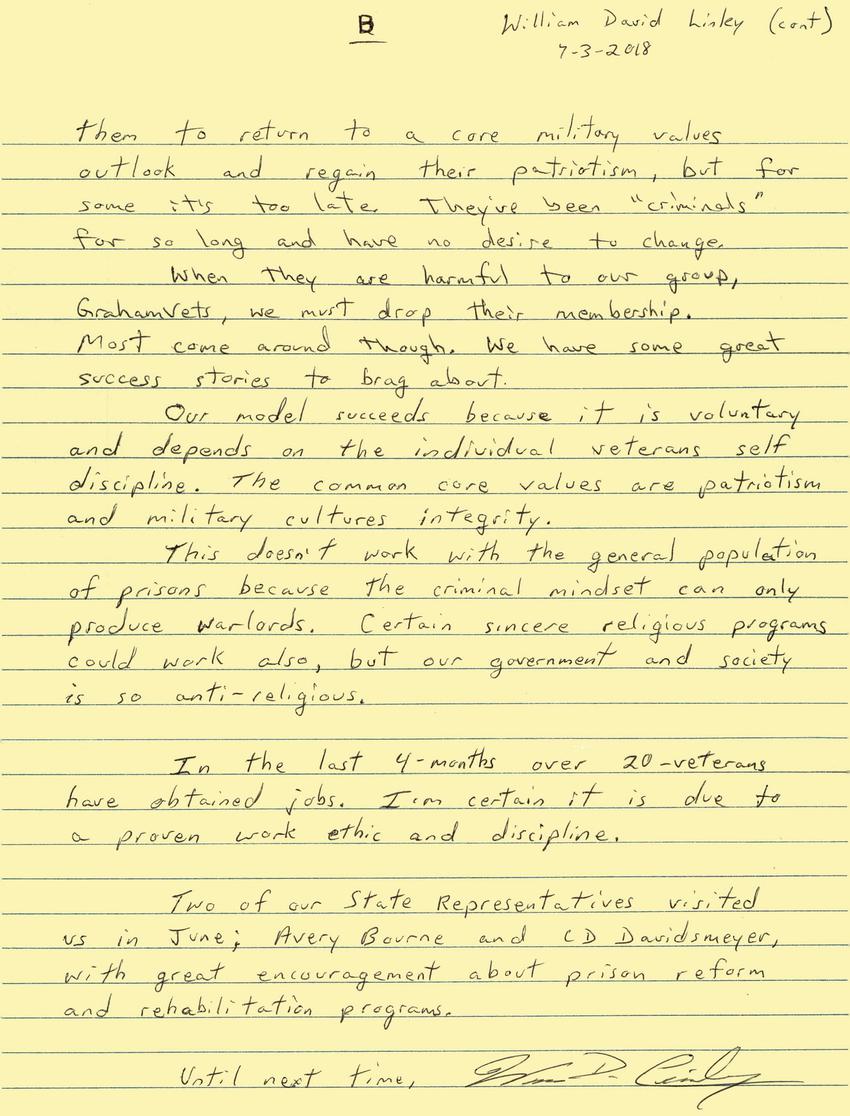 B
William David Linley (cont)
7-3-2018
them to return to a core military values
outlook and regain their patriotism, but for
some it's too late. They've been "criminals"
for so long and have no desire to change.
When they are harmful to our group,
GrahamVets, we must drop their membership.
Most come around though. We have some great
success stories to brag about.
Our model succeeds because it is voluntary
and depends on the individual veterans self
discipline. The common core values are patriotism
and military cultures integrity.
This doesn't work with the general population
of prisons because the criminal mindset can only
produce warlords. Certain sincere religious programs
could work also, but our government and society
is so anti-religious.
In the last 4-months over 20-veterans
have obtained jobs. I'm certain it is due to
a proven work ethic and discipline.
Two of our State Representatives visited
us in June; Avery Bourne and CD Davidsmeyer,
with great encouragement about prison reform
and rehabilitation programs.
Until next time,